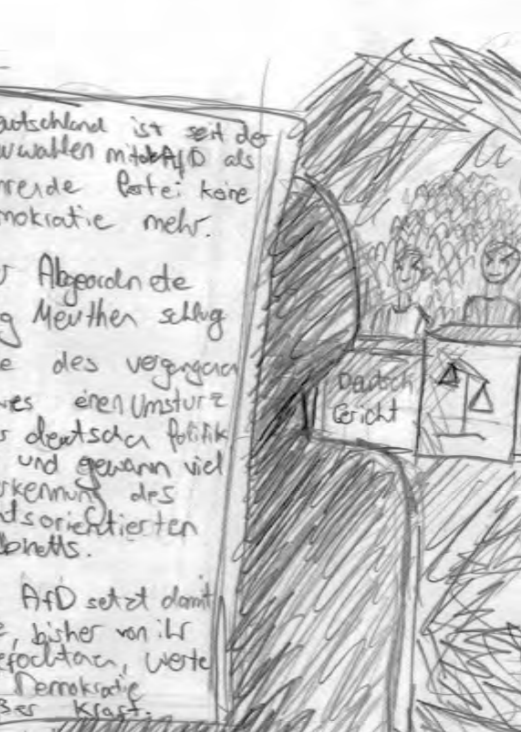 eutschland ist seit der
uwahlen mit der AfD als
hrende Partei keine
mokratie mehr.
r Abgeordnete
g Meuthen schlug
e des vergangenen
res einen Umsturz
r deutscher Politik
und gewann viel
rkennung des
htsorientierten
binetts.
AfD setzt damit
e, bisher von ihr
efochtenen, Werte
Demokratie
ßer Kraft.
Deutsch
Gericht